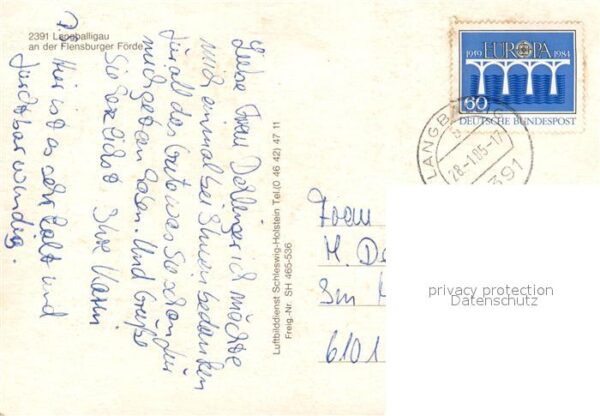 2391 Langballigau
an der Flensburger Förde
Liebe Frau ich möchte
mich einmal bei Ihnen bedanken
für all das Gute was Sie schon für
mich getan haben. Und Grüße
Ihre Karin
P.S. Hier ist es sehr kalt und
furchtbar windig.
Luftbilddienst Schleswig-Holstein Tel.(0 46 42) 47 11
Freig.-Nr. SH 465-536
1959 EUROPA 1984
60
DEUTSCHE BUNDESPOST
LANGBALLIG
28.-1.85-17
2391
Frau
H. De
Im
6101
privacy protection
Datenschutz